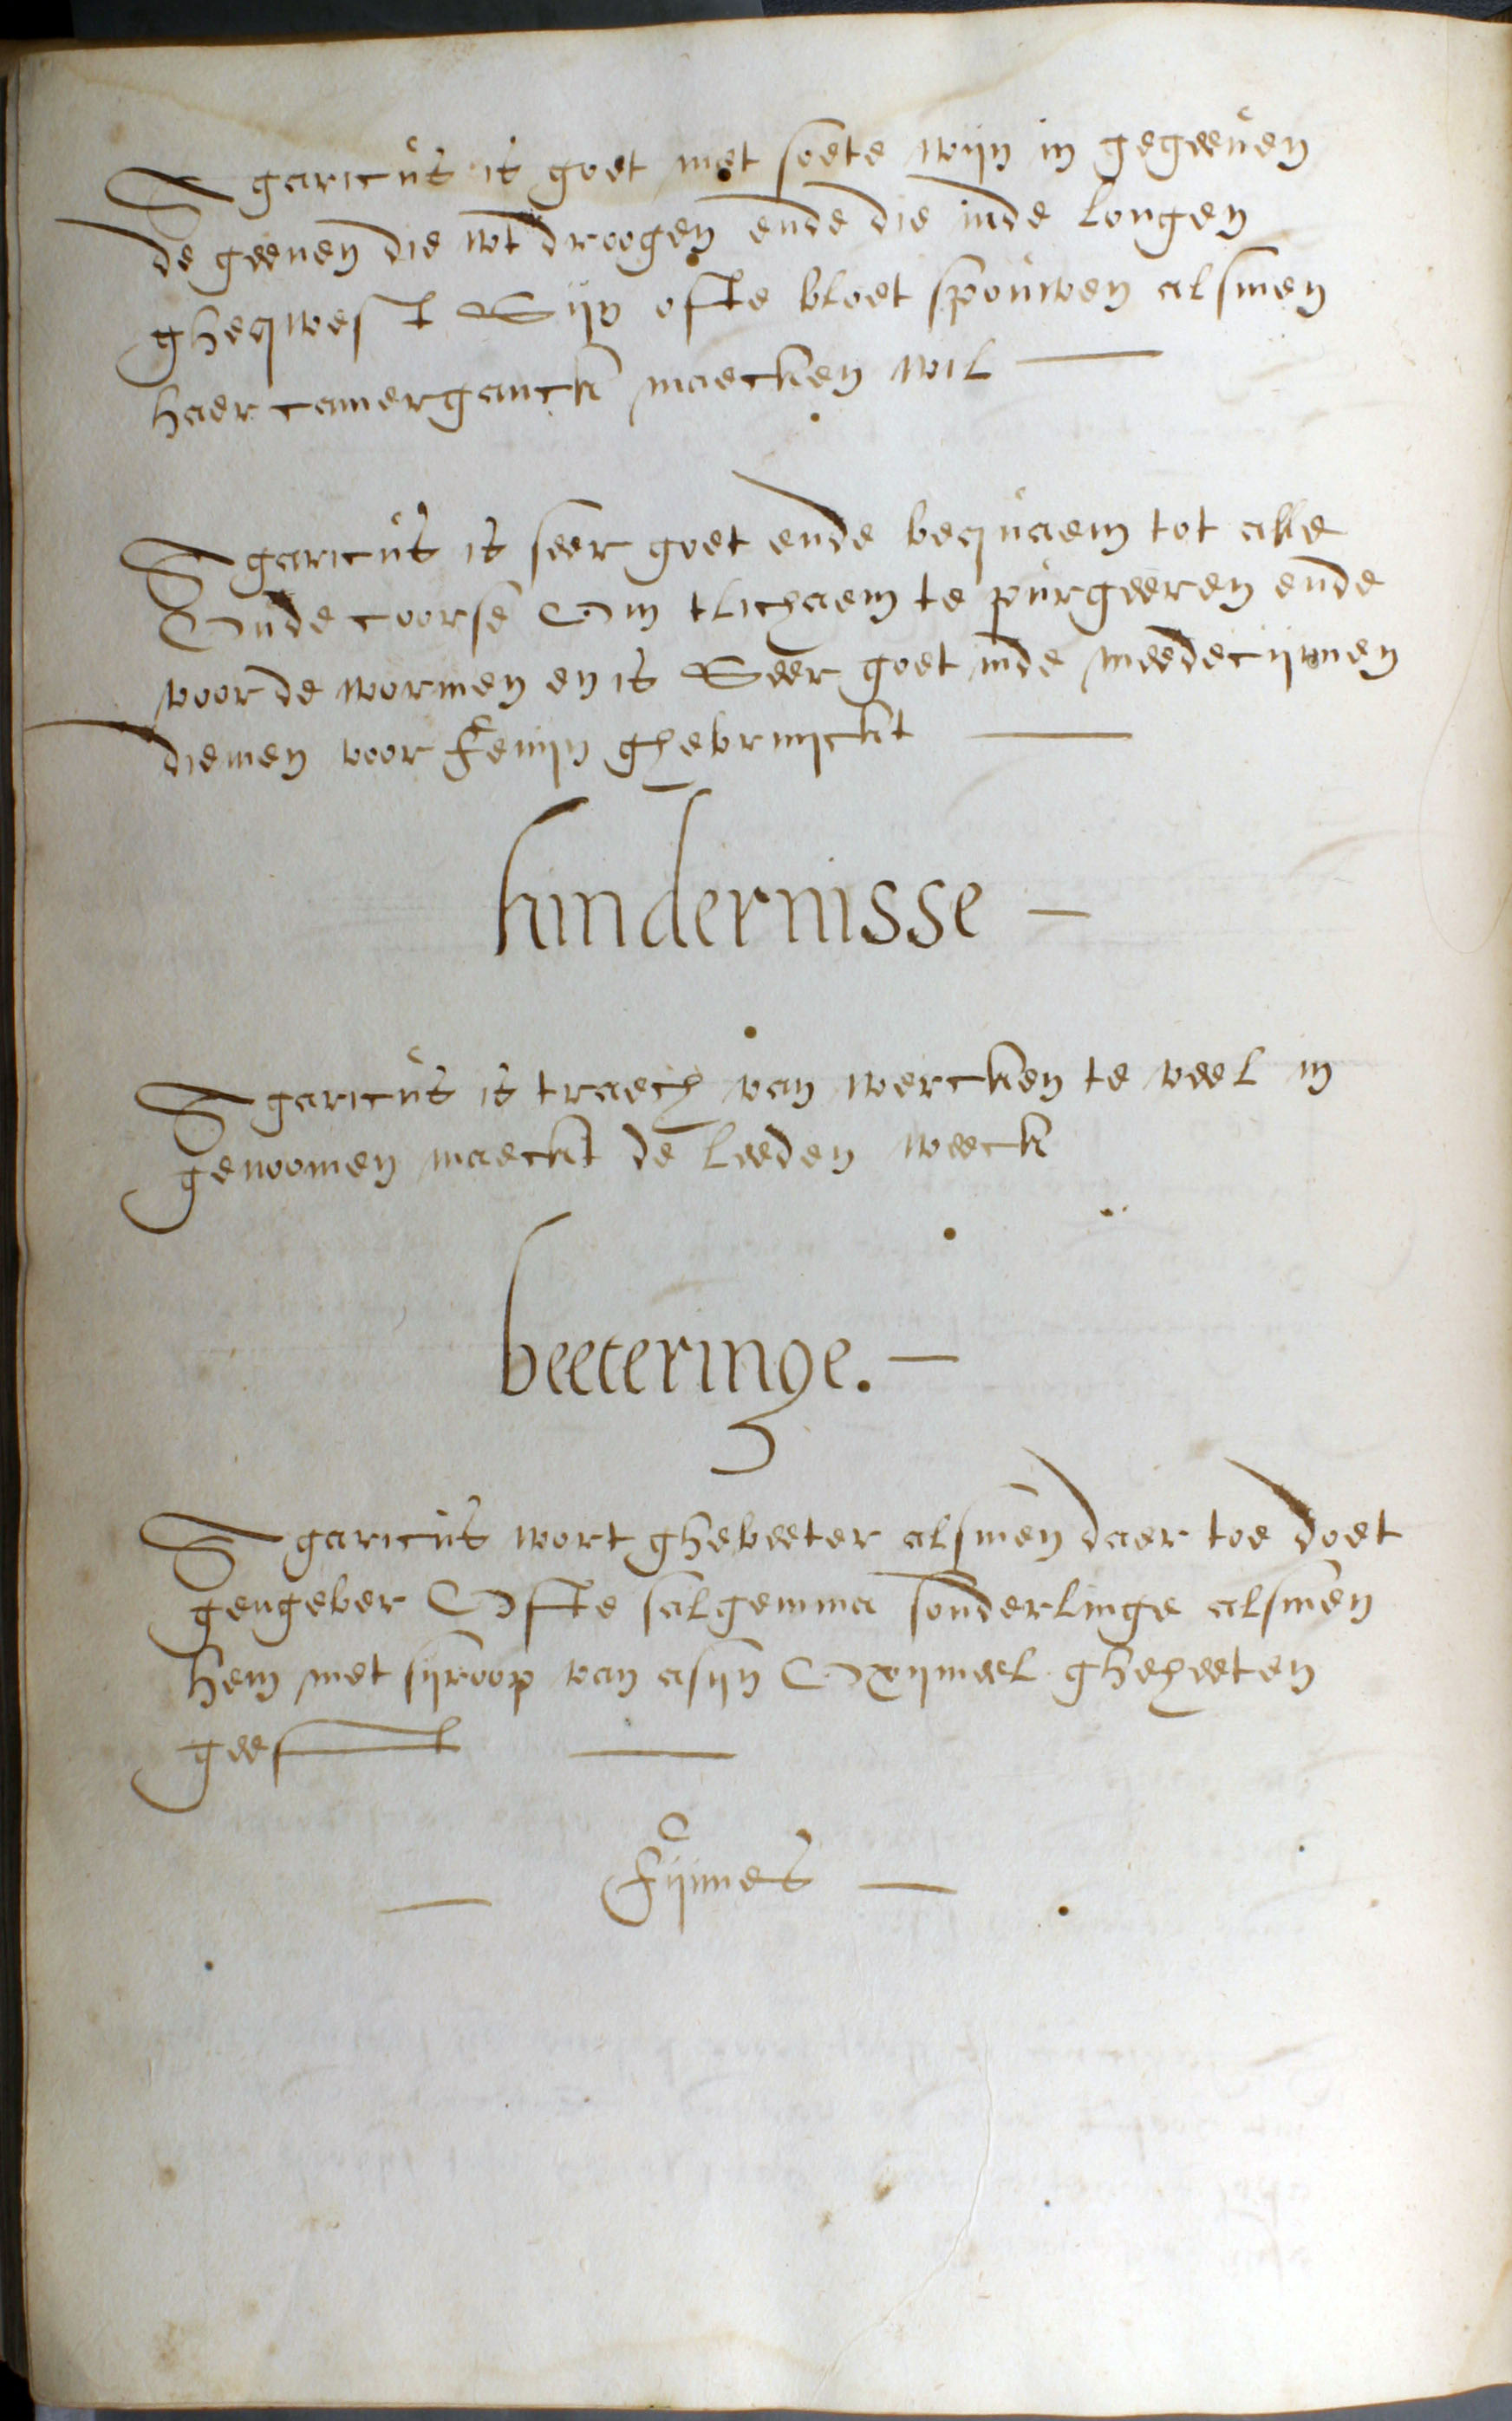 Agaricus is goet met soete wijn in gegeeuen
de geenen die wt droogen ende die inde longen
gheqwest Sijn ofte bloet spouwen alsmen
haer camerganck maecken wil
Agaricus is seer goet ende bequaem tot alle
Oude coorse Om tlichaem te purgeeren ende
voor de wormen en is Seer goet inde meedecijnen
diemen voor fenijn ghebruijckt
hindernisse
Agaricus is traech van wercken te veel in
genoomen maeckt de leeden weeck
beeteringe.
Agaricus wort ghebeeter alsmen daer toe doet
gengeber Ofte salgemma sonderlinge alsmen
hem met sijroop van asijn Oxijmeel gheheeten
geeft
Fijnnes